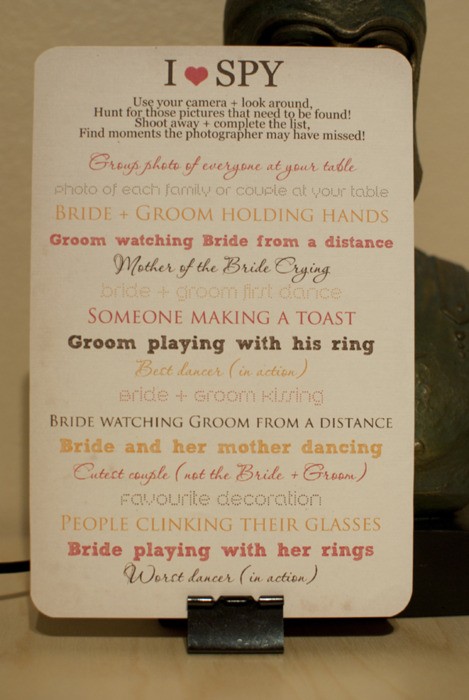 I ♥ SPY
Use your camera + look around,
Hunt for those pictures that need to be found!
Shoot away + complete the list,
Find moments the photographer may have missed!
Group photo of everyone at your table
photo of each family or couple at your table
BRIDE + GROOM HOLDING HANDS
Groom watching Bride from a distance
Mother of the Bride Crying
bride + groom first dance
SOMEONE MAKING A TOAST
Groom playing with his ring
Best dancer (in action)
Bride + Groom Kissing
BRIDE WATCHING GROOM FROM A DISTANCE
Bride and her mother dancing
Cutest couple (not the Bride + Groom)
favourite decoration
PEOPLE CLINKING THEIR GLASSES
Bride playing with her rings
Worst dancer (in action)